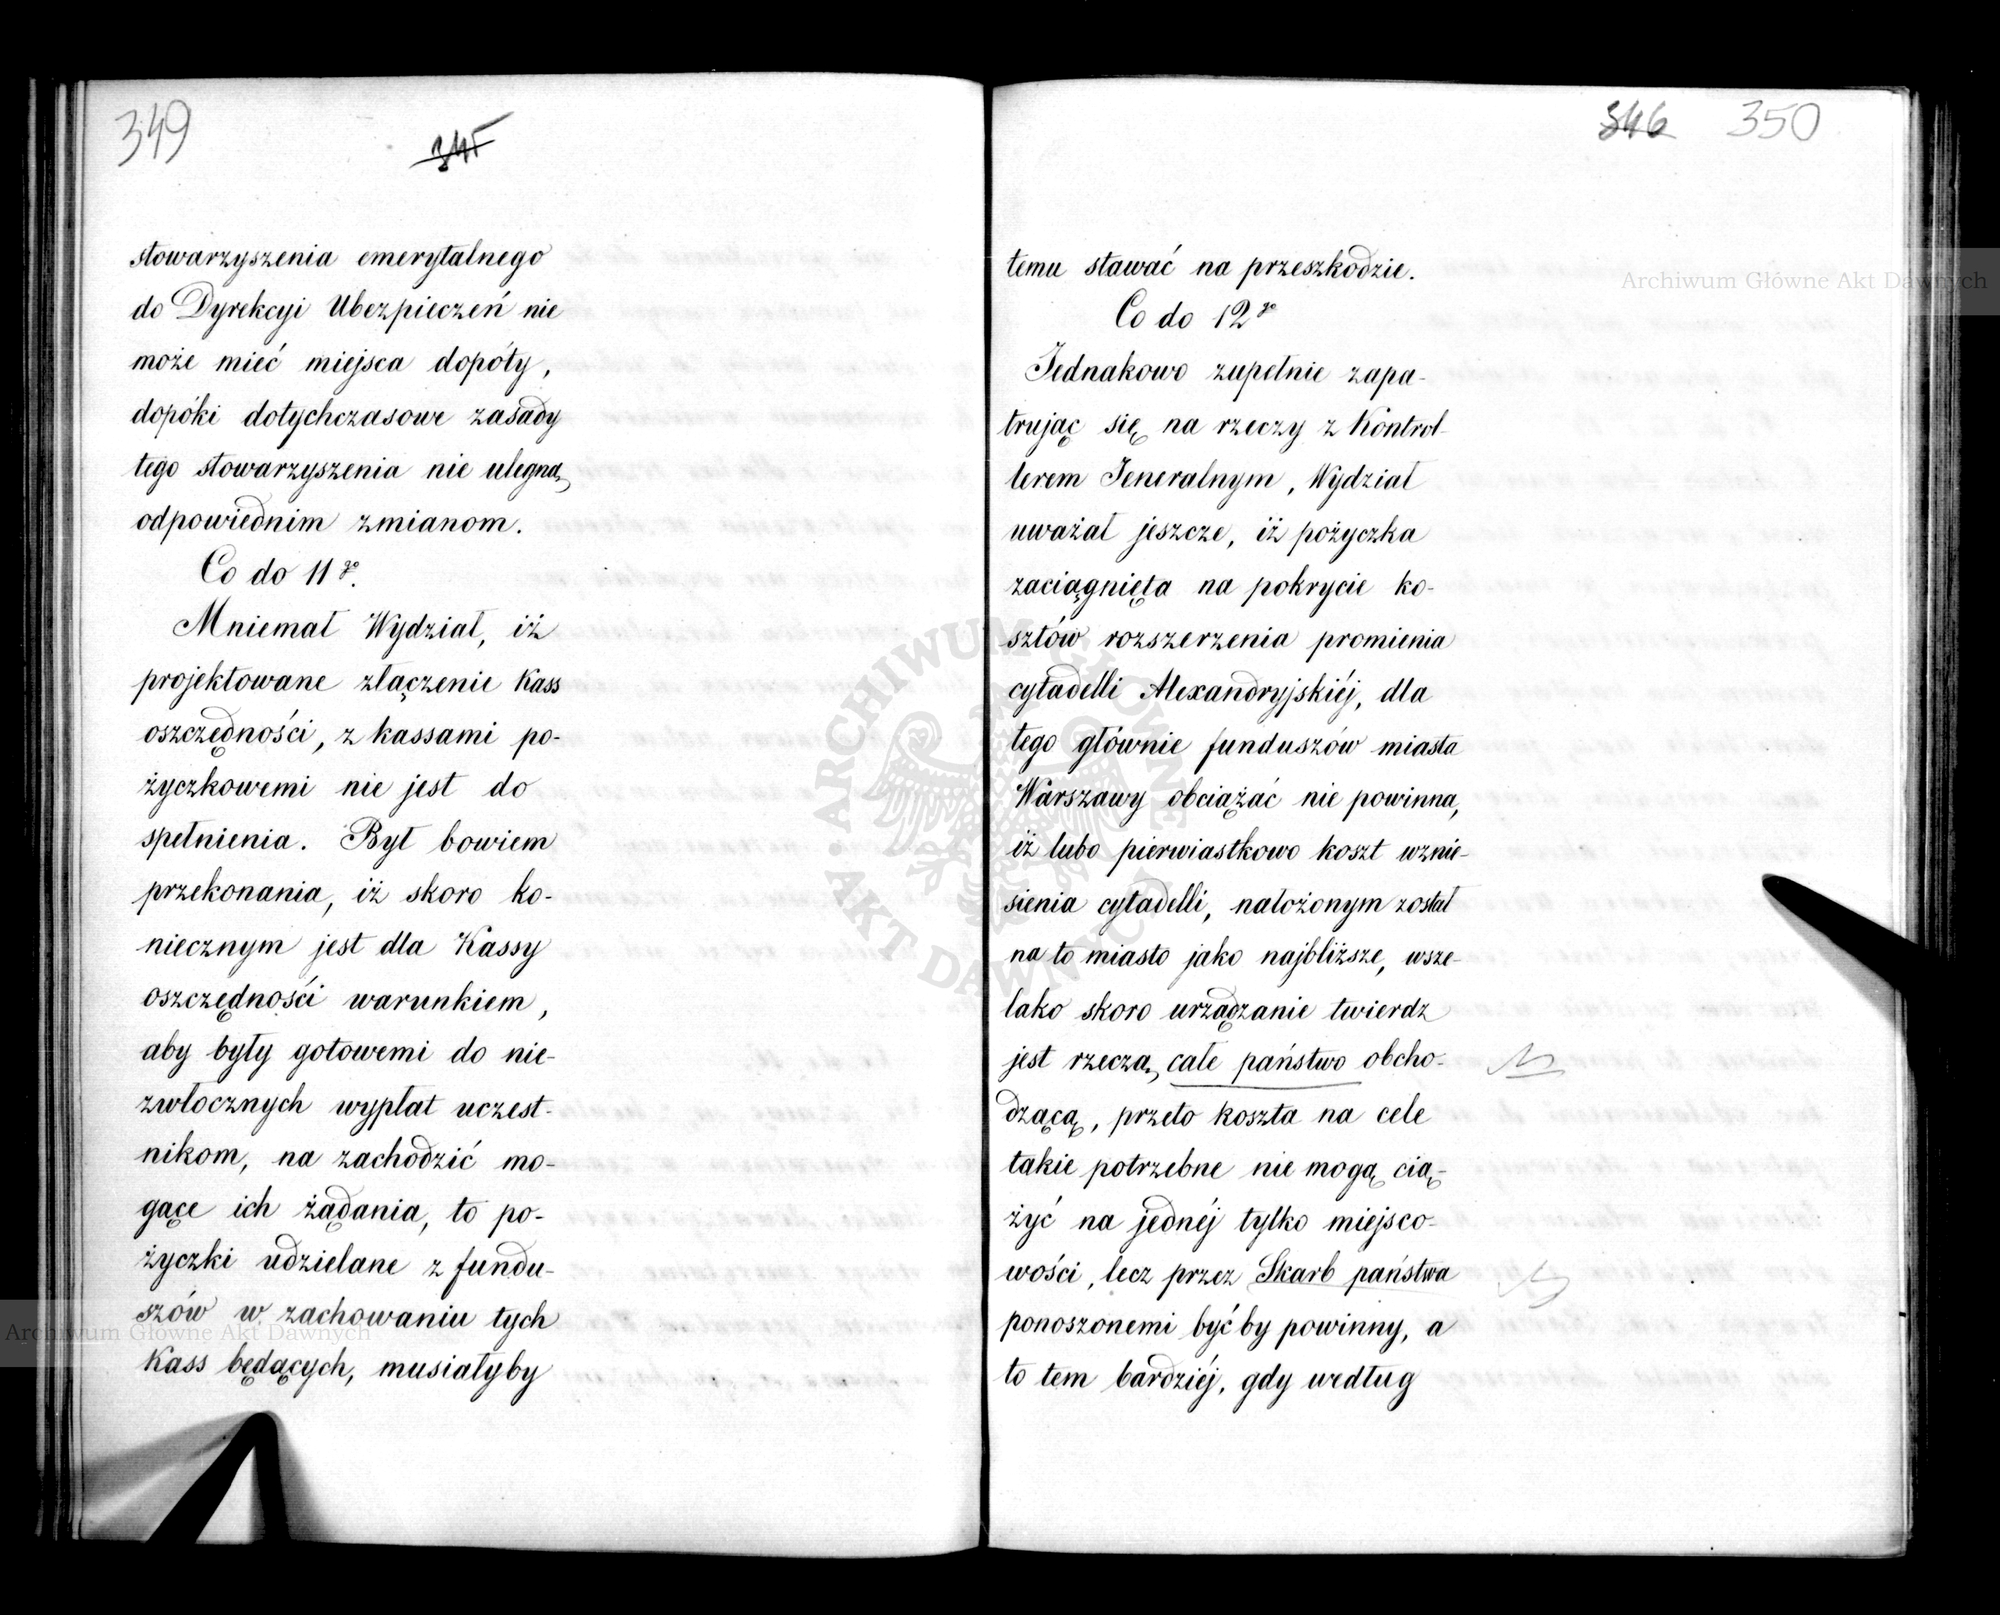 349
345
stowarzyszenia emerytalnego
do Dyrekcyi Ubezpieczeń nie
może mieć miejsca dopóty,
dopóki dotychczasowe zasady
tego stowarzyszenia nie ulegną
odpowiednim zmianom.
Co do 11go.
Mniemał Wydział, iż
projektowane złączenie Kass
oszczędności, z kassami po-
życzkowemi nie jest do
spełnienia. Był bowiem
przekonania, iż skoro ko-
niecznym jest dla Kassy
oszczędności warunkiem,
aby były gotowemi do nie-
zwłocznych wypłat uczest-
nikom, na zachodzić mo-
gące ich żądania, to po-
życzki udzielane z fundu-
szów w zachowaniu tych
Kass będących, musiałyby
346 350
temu stawać na przeszkodzie.
Co do 12go
Jednakowo zupełnie zapa-
trując się na rzeczy z Kontrol-
lerem Jeneralnym, Wydział
uważał jeszcze, iż pożyczka
zaciągnięta na pokrycie ko-
sztów rozszerzenia promienia
cytadelli Alexandryjskiéj, dla
tego głównie funduszów miasta
Warszawy obciążać nie powinna,
iż lubo pierwiastkowo koszt wznie-
sienia cytadelli, nałożonym został
na to miasto jako najbliższe, wsze-
lako skoro urządzanie twierdz
jest rzeczą całe państwo obcho-
dzącą, przeto koszta na cele
takie potrzebne nie mogą cią-
żyć na jednéj tylko miejsco-
wości, lecz przez Skarb państwa
ponoszonemi być by powinny, a
to tem bardziéj, gdy według
Archiwum Główne Akt Dawnych
Archiwum Główne Akt Dawnych
ARCHIWUM GŁÓWNE • AKT DAWNYCH •